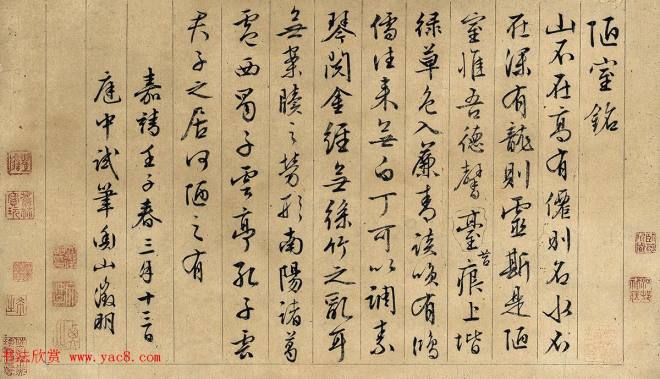 陋室銘
山不在高有僊則名水不
在深有龍則靈斯是陋
室惟吾德馨臺苔痕上堦
綠草色入簾青談咲有鴻
儒往来無白丁可以調素
琴閱金經無絲竹之亂耳
無案牘之勞形南陽諸葛
廬西蜀子雲亭孔子雲
君子之居何陋之有
嘉靖壬子春三月十三日
庭中試筆衡山徵明
书法欣赏 www.yac8.com